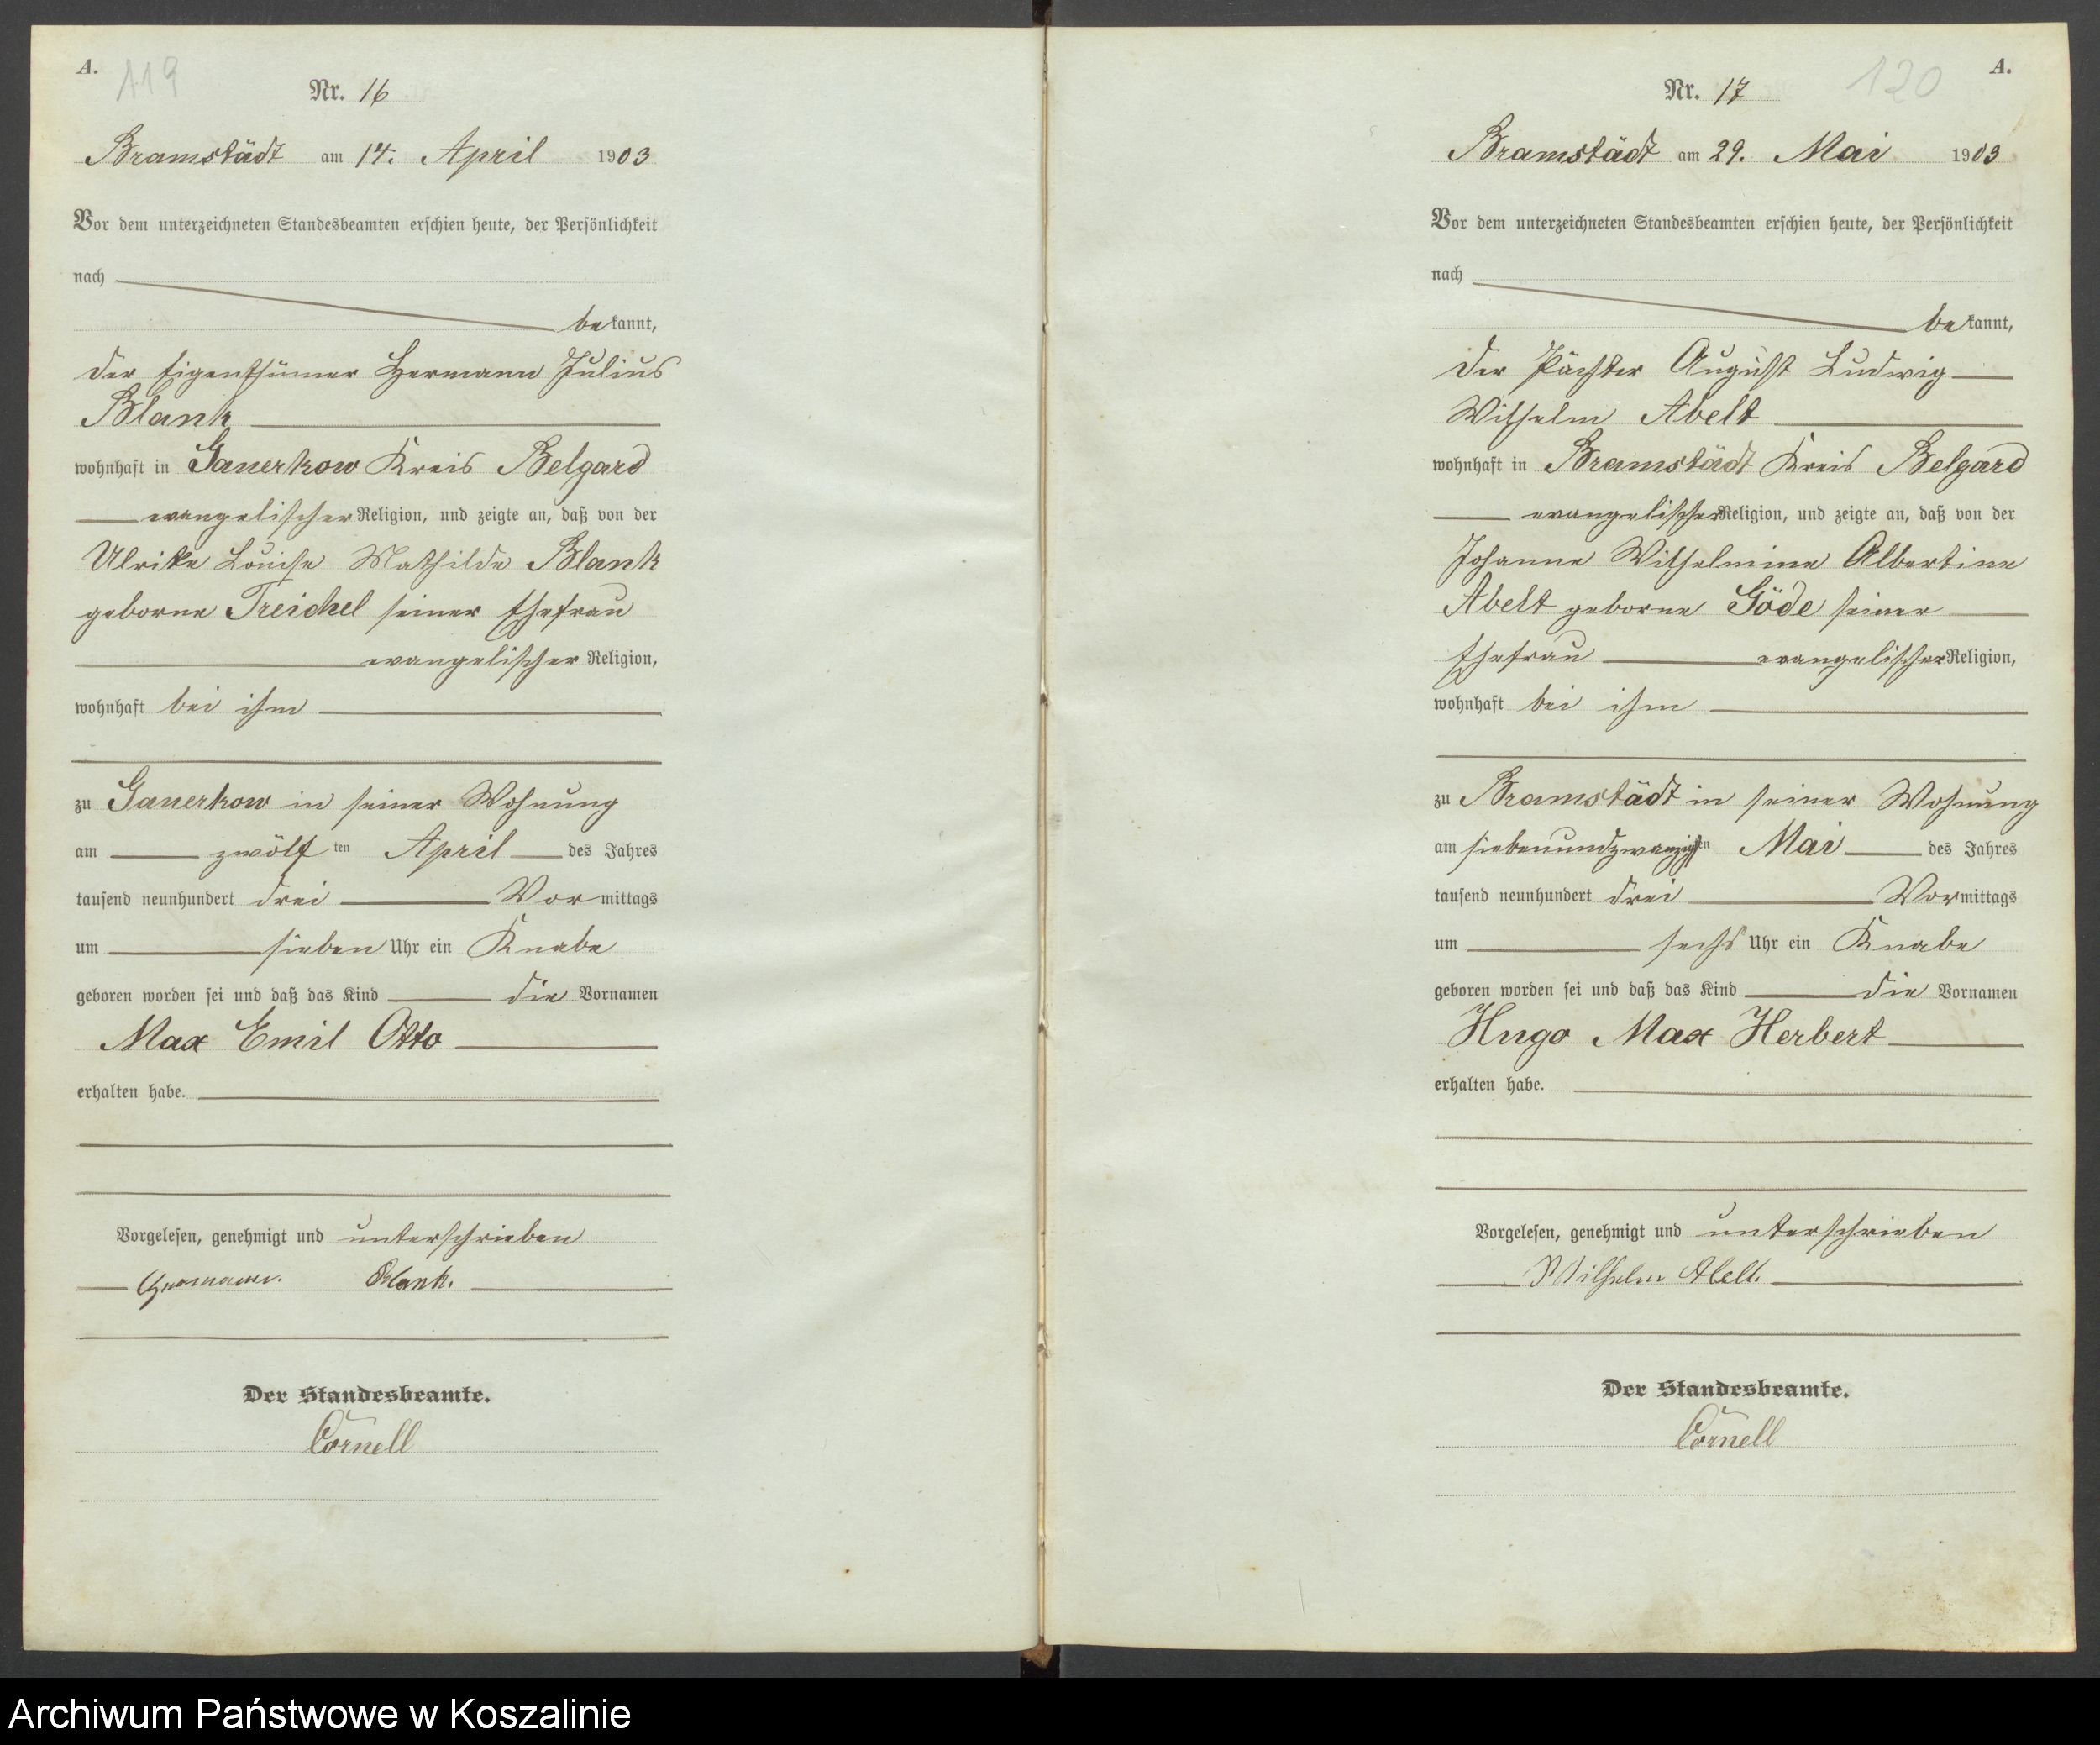 A.
119
Nr. 16
Bramstädt am 14. April 1903
Vor dem unterzeichneten Standesbeamten erschien heute, der Persönlichkeit
nach
bekannt,
der Eigenthümer Hermann Julius
Blank
wohnhaft in Ganerkow Kreis Belgard
evangelischer Religion, und zeigte an, daß von der
Ulrike Louise Mathilde Blank
geborne Treichel seiner Ehefrau
evangelischer Religion,
wohnhaft bei ihm
zu Ganerkow in seiner Wohnung
am zwölf ten April des Jahres
tausend neunhundert drei Vormittags
um sieben Uhr ein Knabe
geboren worden sei und daß das Kind die Vornamen
Max Emil Otto
erhalten habe.
Vorgelesen, genehmigt und unterschrieben
Hermann. Blank.
Der Standesbeamte.
Cornell
A.
120
Nr. 17
Bramstädt am 29. Mai 1903
Vor dem unterzeichneten Standesbeamten erschien heute, der Persönlichkeit
nach
bekannt,
der Pächter August Ludwig
Wilhelm Abelt
wohnhaft in Bramstädt Kreis Belgard
evangelischer Religion, und zeigte an, daß von der
Johanne Wilhelmine Albertine
Abelt geborne Göde seiner
Ehefrau evangelischer Religion,
wohnhaft bei ihm
zu Bramstädt in seiner Wohnung
am siebenundzwanzigsten Mai des Jahres
tausend neunhundert drei Vormittags
um sechs Uhr ein Knabe
geboren worden sei und daß das Kind die Vornamen
Hugo Max Herbert
erhalten habe.
Vorgelesen, genehmigt und unterschrieben
Wilhelm Abelt.
Der Standesbeamte.
Cornell
Archiwum Państwowe w Koszalinie